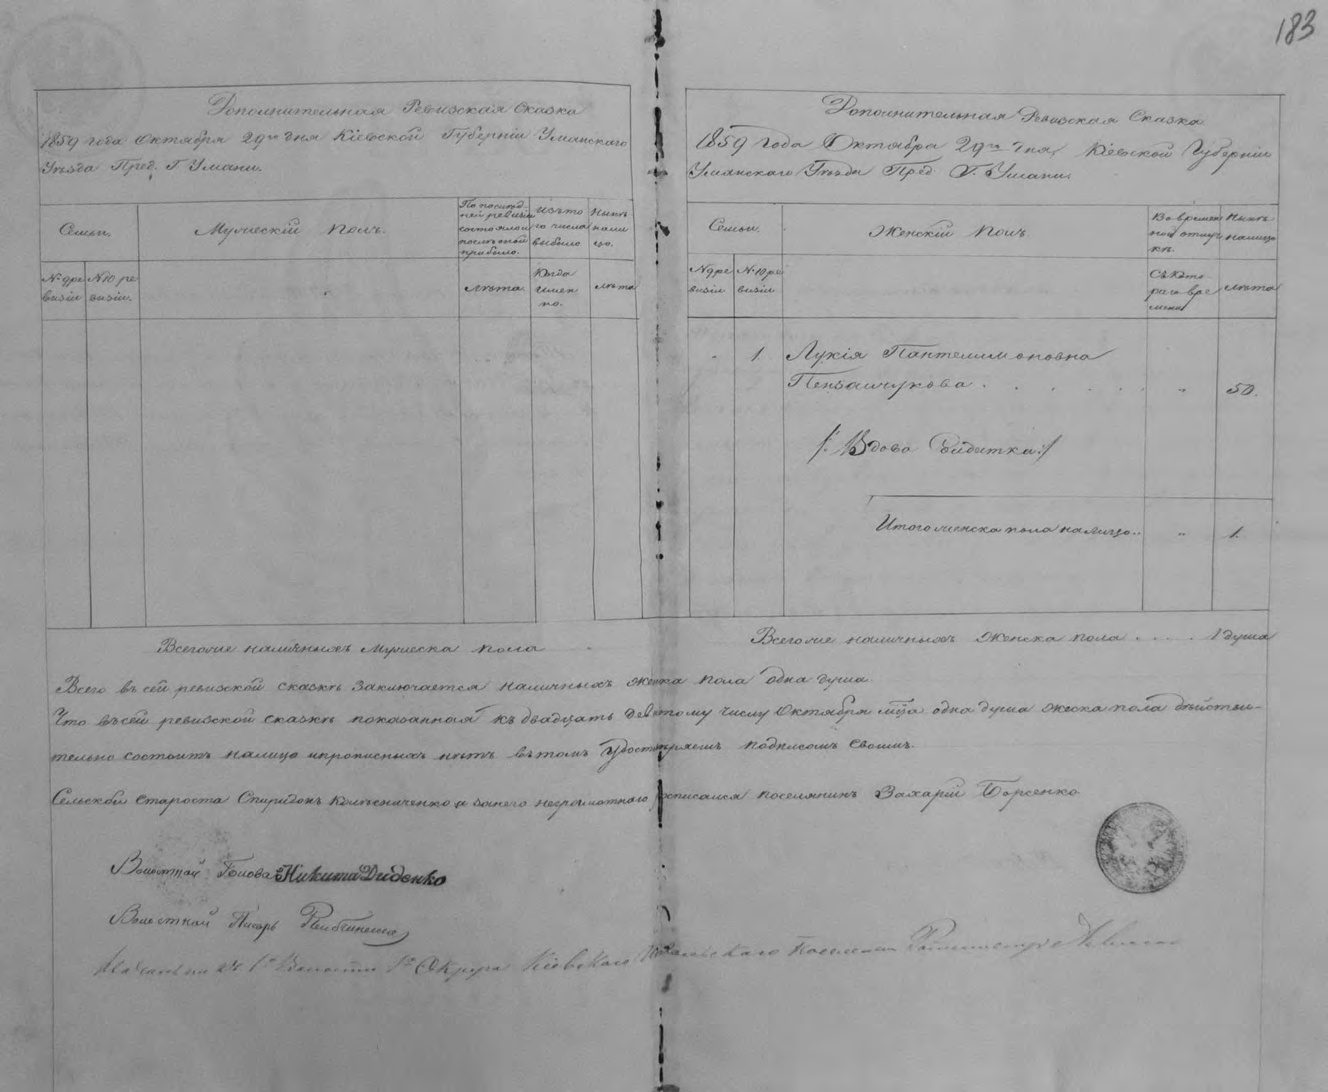 183
Дополнительная Ревизская Сказка
1859 года Октября 29го дня Кіевской Губерніи Уманскаго
Уѣзда Пред. Г. Умани.
Семьи.
Мужескій полъ.
По послѣд-
ней ревизіи
состояло и
послѣ оной
прибыло.
Изъ то
го числа
выбыло
Нынѣ
нали
цо.
№ 9 ре
визіи
№ 10 ре
визіи.
лѣта.
Когда
имен
но.
лѣта
Всего же наличныхъ Мужеска пола
Дополнительная Ревизская Сказка
1859 года Октября 29го дня, Кіевской Губерніи
Уманскаго Уѣзда Пред. Г. Умани.
Семьи.
Женскій полъ
Во времен
ной отлуч
кѣ.
Нынѣ
налицо
№ 9 ре
визіи
№ 10 ре
визіи
Съ кото
раго вре
мени
лѣта
" 1. Лукія Пантелимоновна
" 50.
/: Вдова Солдатка :/
Итого женска пола налицо .. " 1.
Всего же наличныхъ Женска пола . . . . 1 душа
Всего въ сей ревизской сказкѣ заключается наличныхъ женска пола одна душа.
Что въ сей ревизской сказкѣ показанная къ двадцать девятому числу Октября мца одна душа женска пола дѣйстви-
тельно состоитъ налицо и прописныхъ нѣтъ въ томъ удостовѣряемъ подписомъ своимъ.
Сельскій Староста Спиридонъ а за него неграмотнаго росписался поселянинъ Захарій
Волостной Голова Никита Диденко
Волостной Писарь
Начальникъ 1й Волости 1го Округа Кіевскаго Поселенія Ротмистръ